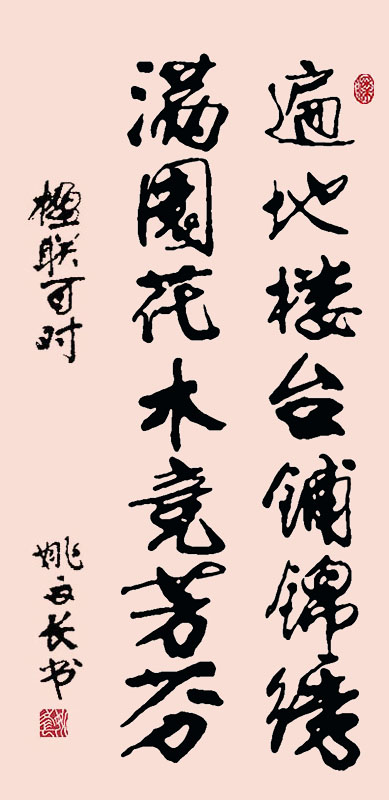 遍地楼台铺锦绣
满園花木竞芳芬
楹联百对
姚长书